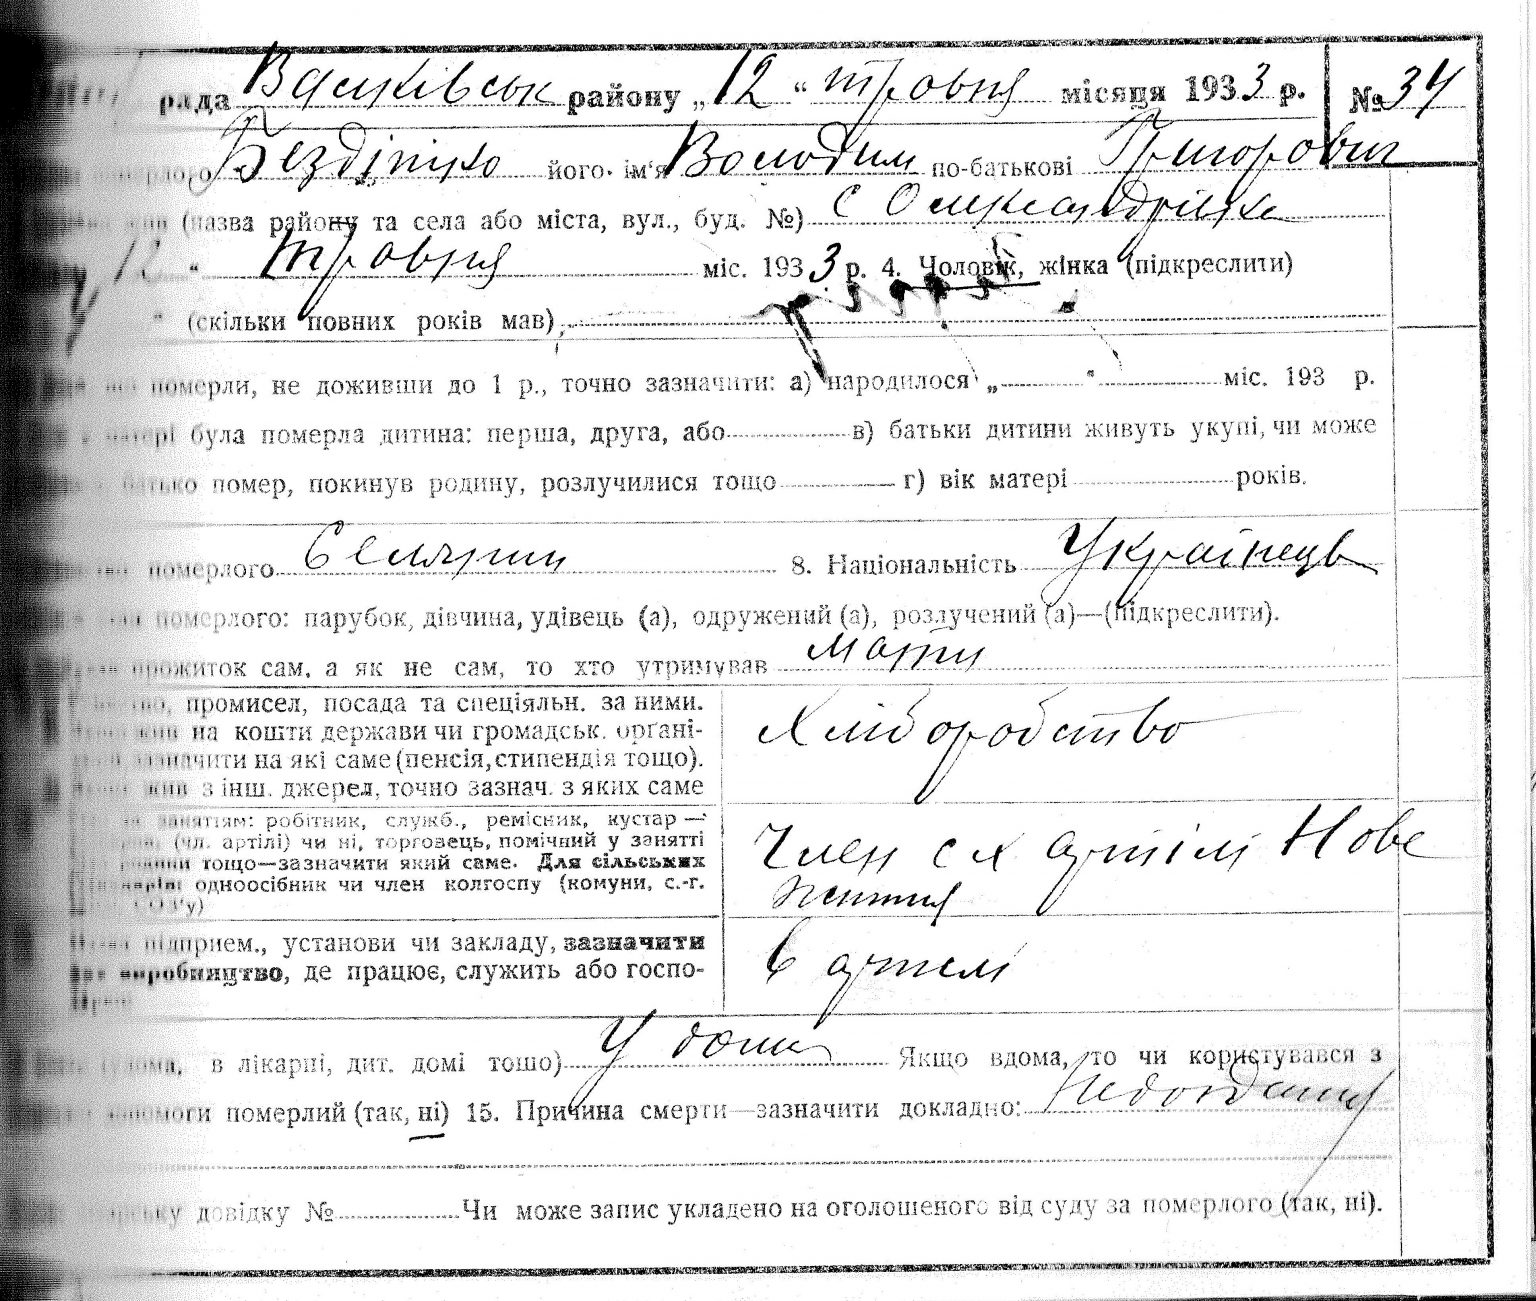 рада Васиківськ району „12“ травня місяця 1933 р. №34
Бездітко його ім'я Володим по-батькові Григорович
(назва району та села або міста, вул., буд. №) с Олександрівка
12 “ травня міс. 1933 р. 4. Чоловік, жінка (підкреслити)
“ (скільки повних років мав)
померли, не доживши до 1 р., точно зазначити: а) народилося „ “ міс. 193 р.
матері була померла дитина: перша, друга, або в) батьки дитини живуть укупі, чи може
батько помер, покинув родину, розлучилися тощо г) вік матері років.
померлого Селянин 8. Національність Українець
померлого: парубок, дівчина, удівець (а), одружений (а), розлучений (а)—(підкреслити).
прожиток сам, а як не сам, то хто утримував мати
промисел, посада та спеціяльн. за ними.
на кошти держави чи громадськ. орґані-
зазначити на які саме (пенсія, стипендія тощо).
жив з інш. джерел, точно зазнач. з яких саме
Хліборобство
занятіям: робітник, служб., ремісник, кустар —
(чл. артілі) чи ні, торговець, помічний у занятті
родини тощо—зазначити який саме. Для сільських
одноосібник чи член колгоспу (комуни, с.-г.
СОЗ'у)
Член с х артілі Нове
життя
підприєм., установи чи закладу, зазначити
виробництво, де працює, служить або госпо-
В артілі
вдома, в лікарні, дит. домі тощо) У дома Якщо вдома, то чи користувався з
допомоги померлий (так, ні) 15. Причина смерти—зазначити докладно: Недоїдання
довідку № Чи може запис укладено на оголошеного від суду за померлого (так, ні).